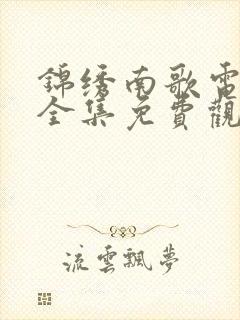 錦绣南歌電
全集免費觀
流雲飄夢